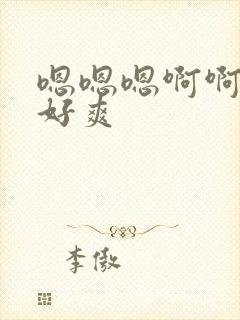 嗯嗯嗯啊啊
好爽
李傲